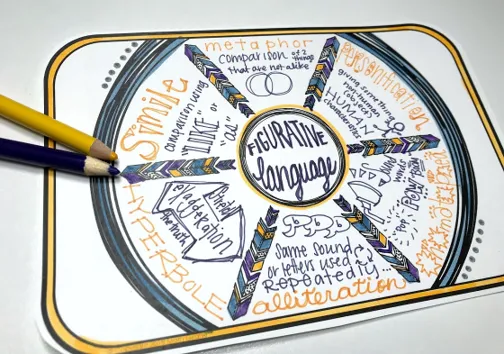 FIGURATIVE
language
metaphor
comparison of 2 things
that are not alike
personification
giving something
non-human
HUMAN
characteristics
Same sound
or letters used
REPEATEDLY...
alliteration
HYPERBOLE
exaggeration
Simile
comparison using
"LIKE" or
"as"